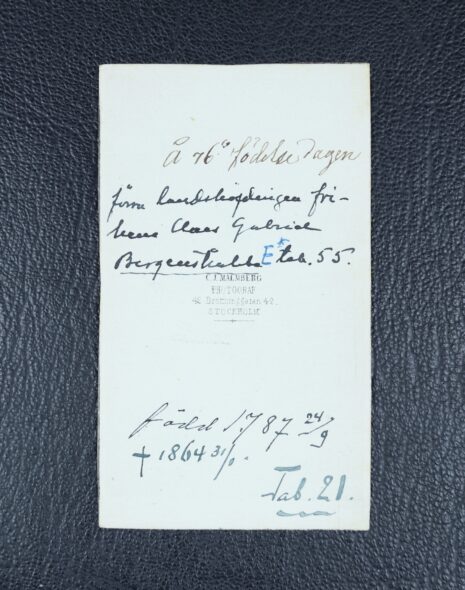 Å 76e födelse dagen
förre landshöfdingen fri-
herre Claes Gabriel
Bergenstråhle E* tab. 55.
C.J.MALMBERG
PHOTOGRAF
42 Drottninggatan 42.
STOCKHOLM
född 1787 24/9
† 1864 31/
Tab. 21.